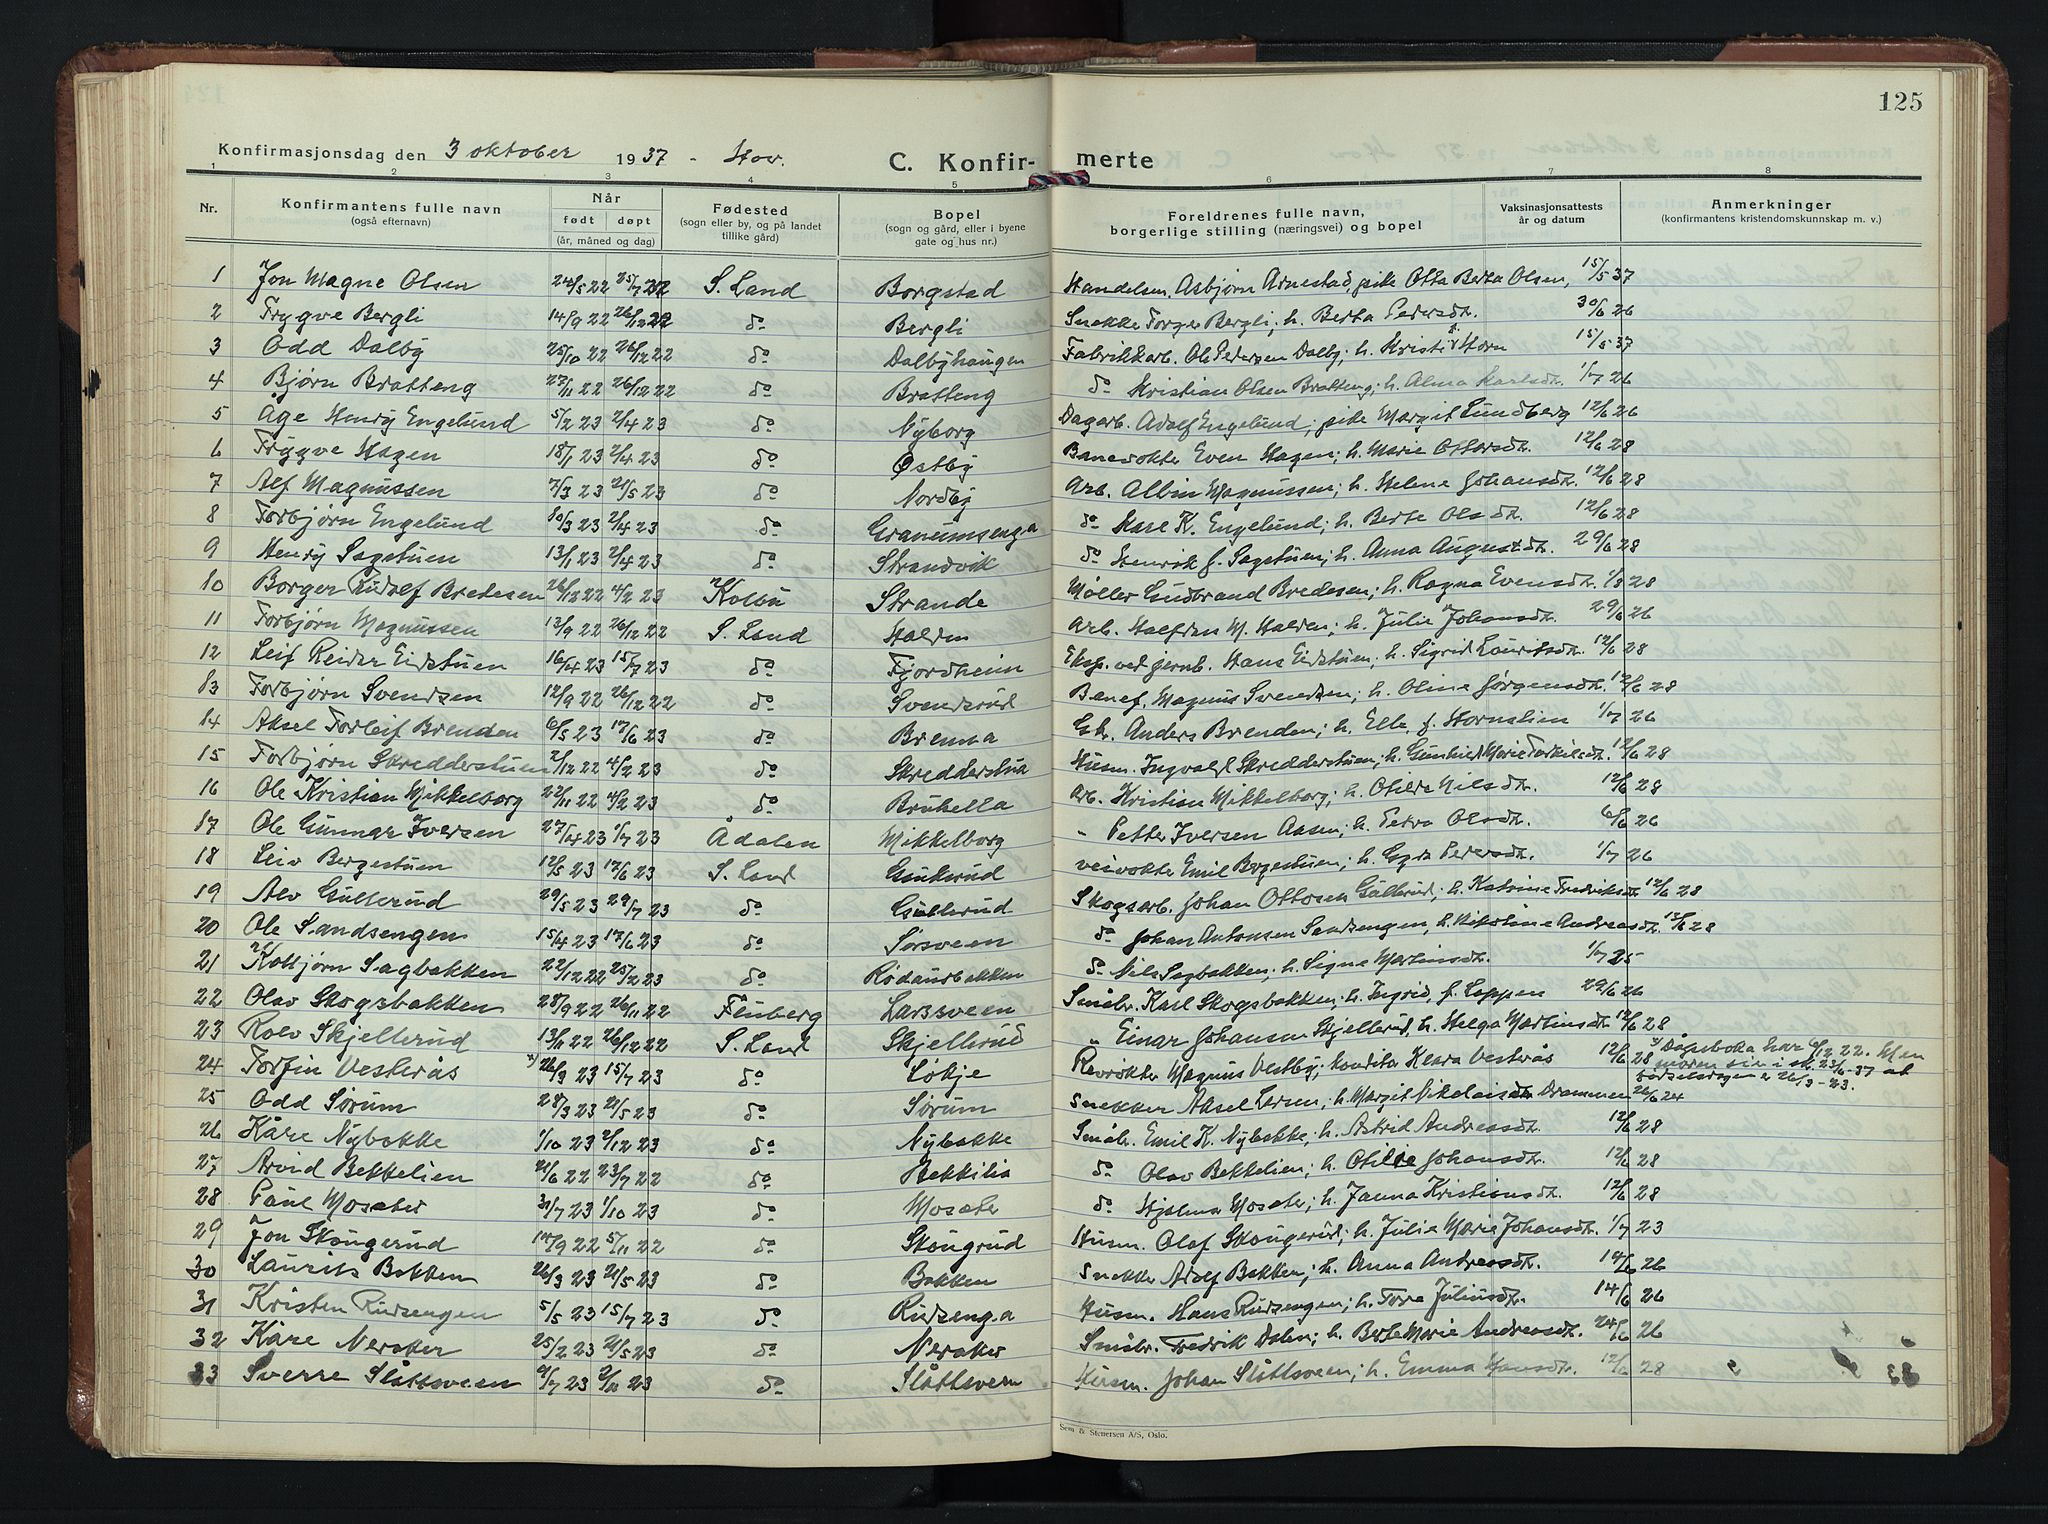 125
Konfirmasjonsdag den 3 oktober 1937 - Hov.
C. Konfirmerte
1 2 3 4 5 6 7 8
Nr. Konfirmantens fulle navn (også efternavn) Når født døpt (år, måned og dag) Fødested (sogn eller by, og på landet tillike gård) Bopel (sogn og gård, eller i byene gate og hus nr.) Foreldrenes fulle navn, borgerlige stilling (næringsvei) og bopel Vaksinasjonsattests år og datum Anmerkninger (konfirmantens kristendomskunnskap m. v.)
1 Jon Magne Olsen 24/5 22 25/7 22 S. Land Borgstad Handelsm. Asbjørn Arnestad, pike Otta Berta Olsen, 15/5 37
2 Trygve Bergli 14/9 22 26/12 22 do Bergli Snekke Torger Bergli; h. Berta Pedersdt. 30/6 26
3 Odd Dalby 25/10 22 26/12 22 do Dalbyhaugen Fabrikkarb. Ole Pedersen Dalby; h. Kristi Horn 15/5 37
4 Bjørn Bratteng 27/11 22 26/12 22 do Bratteng do Kristian Olsen Bratteng; h. Alma Karlsdt. 1/7 26
5 Åge Henry Engelund 5/2 23 2/4 23 do Nyborg Dagarb. Adolf Engelund; pike Margit Lundberg 12/6 26
6 Trygve Hagen 18/1 23 2/4 23 do Østby Banevokter Even Hagen; h. Marie Ottersdt. 12/6 28
7 Alf Magnussen 7/3 23 21/5 23 do Nordby Arb. Albin Magnussen; h. Helene Johansdt. 12/6 28
8 Torbjørn Engelund 20/3 23 2/4 23 do Granumsenga do Karl K. Engelund; h. Berte Olsdt. 12/6 28
9 Henry Sagstuen 13/1 23 2/4 23 do Strandvik do Henrik J. Sagstuen; h. Anna Augustdt. 29/6 28
10 Borger Rudolf Bredesen 26/12 22 4/2 23 Kolbu Strande Møller Gudbrand Bredesen; h. Ragna Evensdt. 1/8 28
11 Torbjørn Magnussen 13/9 22 26/12 22 S. Land Halden Arb. Halfdan M. Halden; h. Julie Johansdt. 29/6 26
12 Leif Reidar Eidstuen 16/4 23 15/7 23 do Fjordheim Eksp. ved jernb. Hans Eidstuen; h. Sigrid Lauritsdt. 12/6 28
13 Torbjørn Svendsen 12/9 22 26/12 22 do Svendsrud Banef. Magnus Svendsen; h. Oline Jørgensdt. 12/6 28
14 Aksel Torleif Brenden 6/5 23 17/6 23 do Brenna Gk. Anders Brenden; h. Elle f. Hornslien 1/7 26
15 Torbjørn Skredderstuen 2/12 22 4/2 23 do Skredderstua Husm. Ingvald Skredderstuen; h. Gunhild Marie Torkilsdt. 12/6 28
16 Ole Kristian Mikkelborg 22/11 22 4/2 23 do Brubella Arb. Kristian Mikkelborg; h. Otilda Nilsdt. 12/6 28
17 Ole Gunnar Iversen 27/4 23 1/7 23 Ådalen Mikkelborg " Petter Iversen Aasen; h. Petra Olsdt. 6/6 26
18 Leiv Bergestuen 12/5 23 17/6 23 S. Land Gaukrud veivokte Emil Bergestuen; h. Gyda Pedersdt. 1/7 26
19 Alv Gullerud 29/5 23 29/7 23 do Gullerud Skogsarb. Johan Ottosen Gullerud; h. Katrine Fredriksdt. 12/6 28
20 Ole Sandsengen 15/4 23 17/6 23 do Sørsveen do Johan Antonsen Sandsengen, h. Nikoline Andreasdt. 13/6 28
21 Kolbjørn Sagbakken 22/12 22 25/2 23 do Rødaursbakken do Nils Sagbakken; h. Signe Martinsdt. 1/7 25
22 Olav Skogsbakken 28/9 22 26/11 22 Fluberg Larssveen Småbr. Karl Skogsbakken; h. Ingrid f. Loppen 29/6 26
23 Rolv Skjellerud 13/11 22 26/12 22 S. Land Skjellerud " Einar Johansen Skjellerud, h. Helga Martinsdt. 12/6 28
24 Torfin Vesterås *) 26/3 23 15/7 23 do Løkje Revrøkter Magnus Østby; kondita Klara Vesterås 12/6 28 *) Dåpsboka har 6/12 22. Men moren sier i sk. 23/6-37 at fødselsdagen er 26/3-23.
25 Odd Sørum 28/3 23 21/5 23 do Sørum Snekker Aksel Larsen; h. Margit Nikolaisdt. Drammen 26/6 24
26 Kåre Nybakke 1/10 23 2/12 23 do Nybakke Småbr. Emil K. Nybakke; h. Astrid Andreasdt. 12/6 28
27 Arvid Bekkelien 21/6 22 23/7 22 do Bekkilia do Olav Bekkelien; h. Otilie Johansdt. 12/6 28
28 Paul Mosæter 31/7 23 1/10 23 do Mosæter do Hjalmar Mosæter; h. Janna Kristiansdt. 12/6 28
29 Jon Skaugerud 14/9 22 5/11 22 do Skaugrud Husm. Olaf Skaugerud; h. Julie Marie Johansdt. 1/7 23
30 Laurits Bakken 26/3 23 21/5 23 do Bakken Snekke Adolf Bakken; h. Anna Andreasdt. 14/6 26
31 Kristen Rudsengen 5/5 23 15/7 23 do Rudsenga Husm. Hans Rudsengen; h. Tora Juliusdt. 14/6 26
32 Kåre Neraker 25/2 23 21/5 23 do Neraker Småbr. Fredrik Dalen; h. Berte Marie Andreasdt. 24/6 26
33 Sverre Slåttsveen 9/7 23 2/12 23 do Slåttsveen Husm. Johan Slåttsveen; h. Emma Hansdt. 12/6 28
Sem & Stenersen A/S, Oslo.